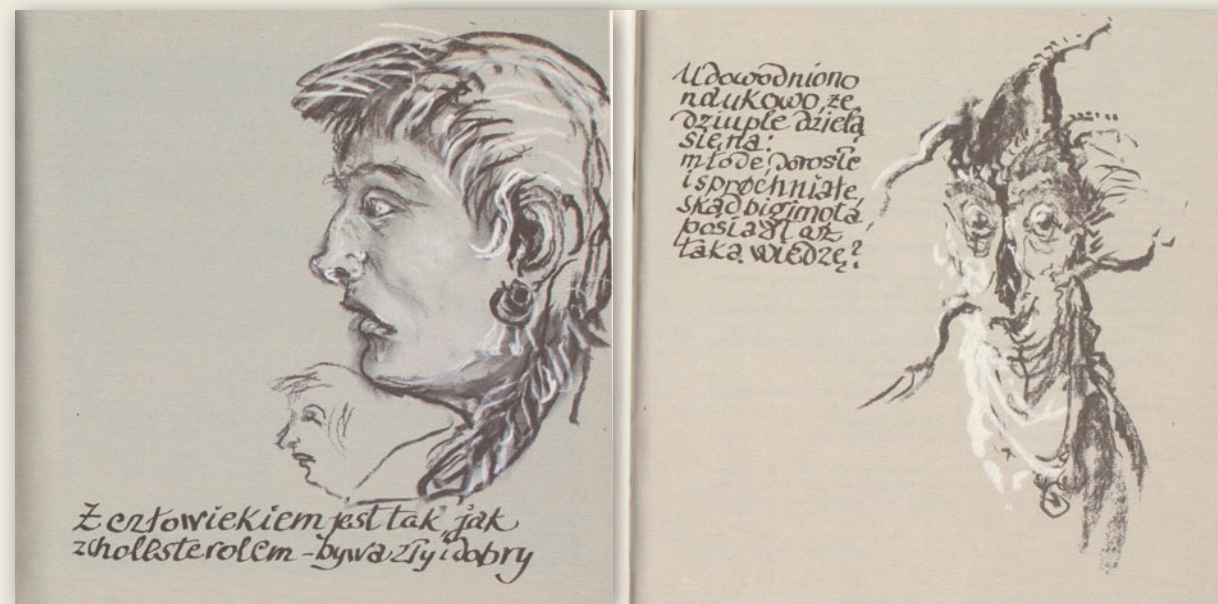 Z człowiekiem jest tak, jak
z chollsterolem – bywa zły i dobry
Udowodniono
naukowo, że
dziuple dzielą
się na:
młode, dorosłe
i spróchniałe,
skąd bigimota
posiadł aż
taką wiedzę?